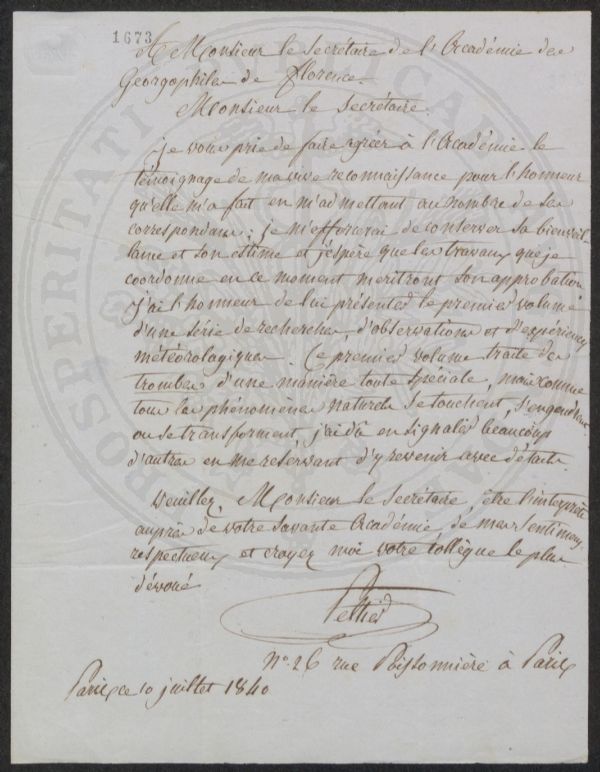 1673
A Monsieur le secrétaire de l'Académie des
Georgophiles de Florence
Monsieur le secrétaire.
je vous prie de faire agréer à l'Académie le
témoignage de ma vive reconnaissance pour l'honneur
qu'elle m'a fait en m'admettant au nombre de ses
correspondans; je m'efforcerai de conserver sa bienveil-
lance et son estime et j'espère que les travaux que je
coordonne en ce moment meritront son approbation
j'ai l'honneur de lui présenter le premier volume
d'une série de recherches d'observations et d'expériences
météorologiques. Ce premier volume traite des
trombes d'une manière toute spéciale, mais comme
tous les phénomènes naturels se touchent, s'engendrent
ou se transforment, j'ai dû en signaler beaucoup
d'autres en me réservant d'y revenir avec détails.
Veuillez, Monsieur le secrétaire, être l'interprète
auprès de votre savante Académie, de mes sentimens
respectueux, et croyez moi votre collègue le plus
dévoué
Peltier
N.º 26 rue Poissonnière à Paris
Paris, ce 10 juillet 1840
PROSPERITATI PUBLICAE